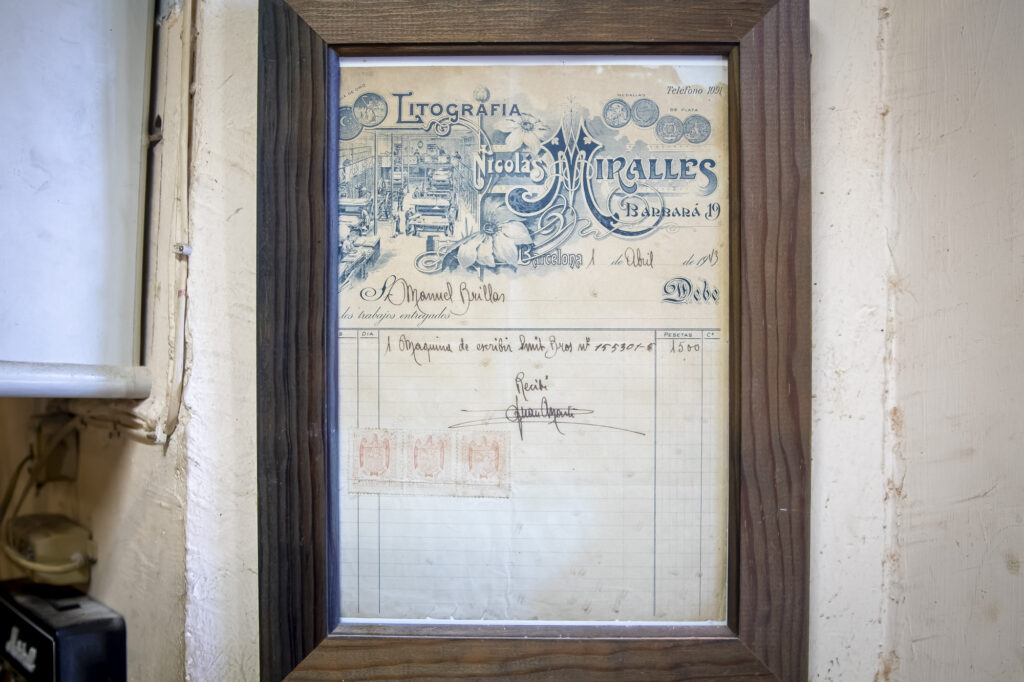 MEDALLAS
DE PLATA
Teléfono 1091
LITOGRAFIA
NICOLÁS MIRALLES
BARBARÁ 19
Barcelona 1 de Abril de 1943
Sr. Manuel Brillas
Debe
los trabajos entregados
DIA PESETAS Cs
1 Maquina de escribir Smit Bros nº 155301-6 1500
Recibí